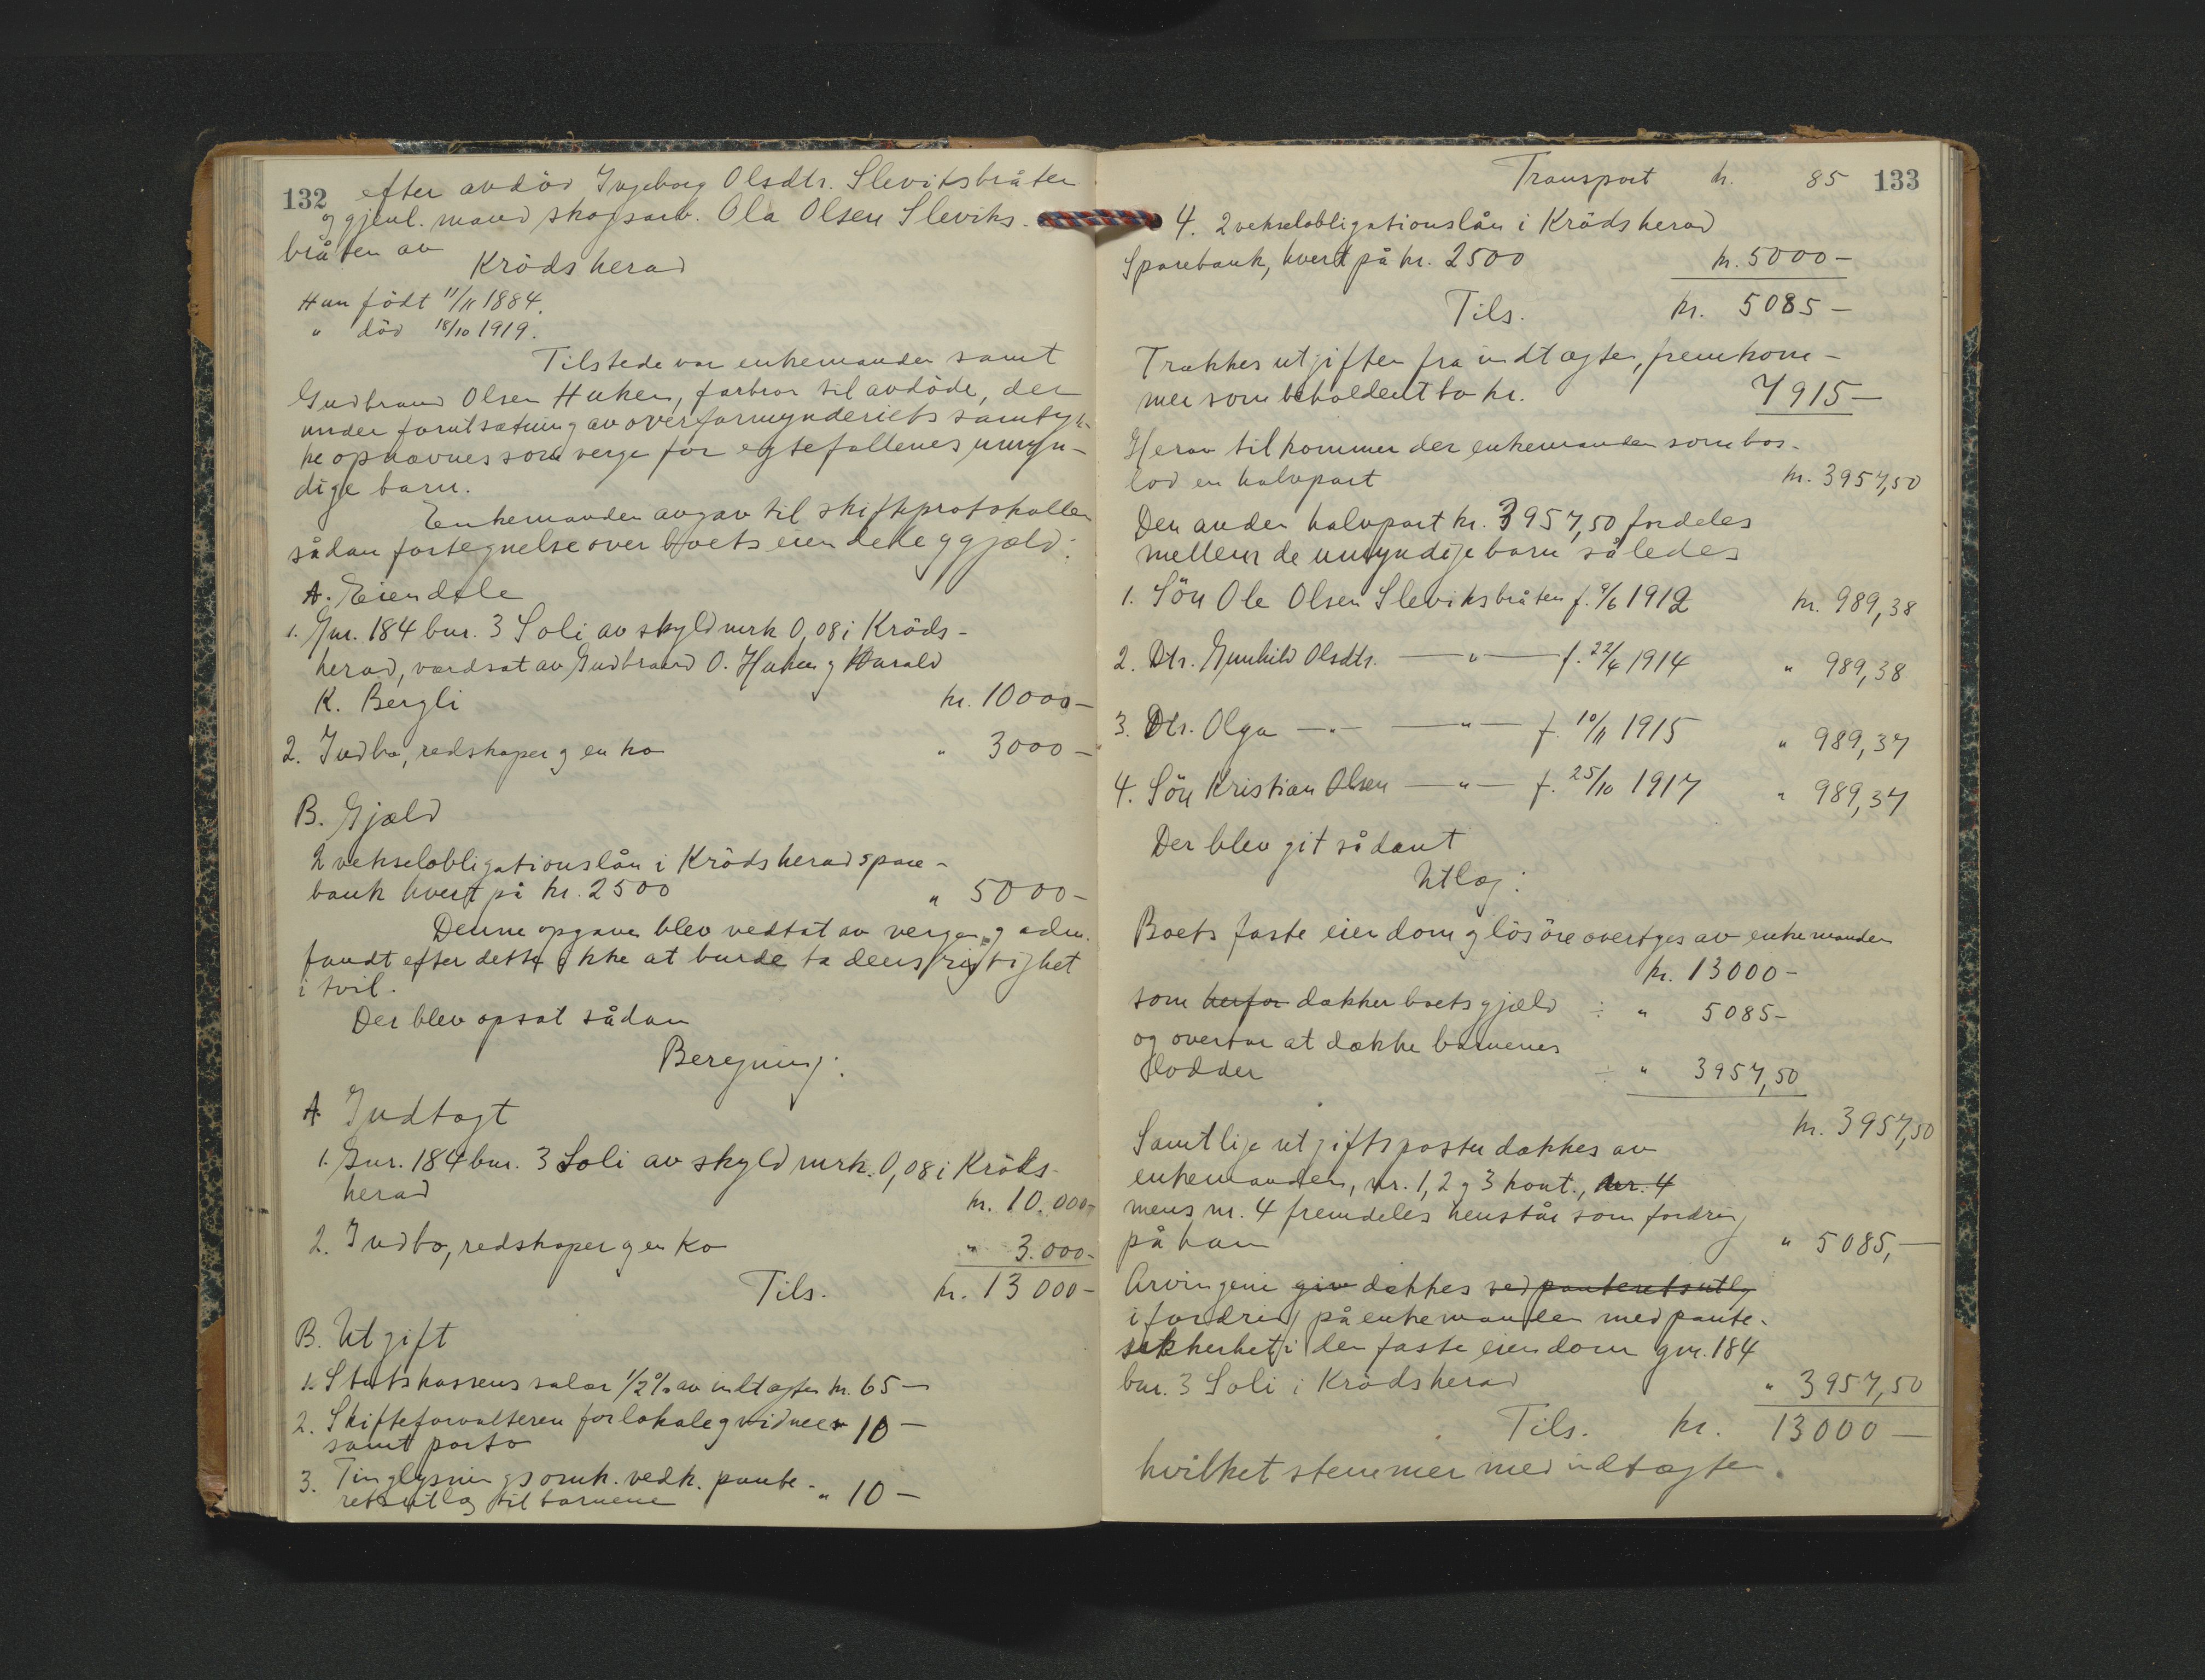 132
efter avdöd Ingeborg Olsdtr. Sleviksbråten
og gjenl. mand skogsarb. Ola Olsen Sleviks-
bråten av
Krödsherad
Hun födt 11/11 1884.
" död 18/10 1919.
Tilstede var enkemanden samt
Gudbrand Olsen Huken, farbror til avdöde, der
under forutsætning av overformynderiets samtyk-
ke opnævnes som verge for egtefællenes umyn-
dige barn.
Enkemanden avgav til skifteprotokollen
sådan fortegnelse over boets eiendele og gjæld:
A. Eiendele
1. Gnr. 184 bnr. 3 Soli av skyld mrk 0,08 i Kröds-
herad, værdsat av Gudbrand O. Huken og Harald
K. Bergli kr. 10000-
2. Indbo, redskaper og en ko " 3000-
B. Gjæld
2 vekselobligationslån i Krödsherad spare-
bank hvert på kr. 2500 " 5000-
Denne opgave blev vedtat av vergen og adm.
fandt efter dette ikke at burde ta dens rigtighet
i tvil.
Der blev opsat sådan
Beregning:
A Indtægt
1. Gnr. 184 bnr. 3 Soli av skyld mrk. 0,08 i Kröds-
herad kr. 10.000-
2. Indbo, redskaper og en ko " 3.000-
Tils. kr. 13000-
B. Utgift
1. Statskassens salær 1/2 % av indtægten kr. 65-
2. Skifteforvalteren for lokale og vidner " 10-
samt porto
3. Tinglysningsomk. vedk. pante-
retsutlæg til barnene " 10-
133
Transport kr. 85
4. 2 vekselobligationslån i Krödsherad
Sparebank, hvert på kr. 2500 kr. 5000-
Tils. kr. 5085-
Trækkes utgiften fra indtægten, fremkom-
mer som beholdent bo kr. 7915-
Herav tilkommer der enkemanden som bos-
lod en halvpart kr. 3957,50
Den anden halvpart kr. 3957,50 fordeles
mellem de umyndige barn således
1. Sön Ole Olsen Sleviksbråten f. 9/6 1912 kr. 989,38
2. Dtr. Gunhild Olsdtr. —"— f. 22/4 1914 " 989,38
3. Dtr. Olga —"— —"— f. 10/11 1915 " 989,37
4. Sön Kristian Olsen —"— f. 25/10 1917 " 989,37
Der blev git sådant
Utlæg:
Boets faste eiendom og lösöre overtages av enkemanden
kr. 13000-
som herfor dækker boets gjæld ÷ " 5085-
og overtar at dække barnenes
lodder ÷ " 3957,50
kr. 3957,50
Samtlige utgiftsposter dækkes av
enkemanden, nr. 1, 2 og 3 kont., nr. 4
mens nr. 4 fremdeles henstår som fordring
på ham " 5085,-
Arvingene giv dækkes ved panteretsutlæg
i fordring på enkemanden med pante-
sikkerhet i den faste eiendom gnr. 184
bnr. 3 Soli i Krödsherad " 3957,50
Tils. kr. 13000-
hvilket stemmer med indtægten.